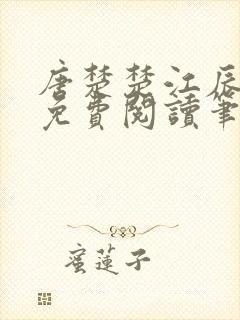 唐楚楚江辰
免費閱讀筆
蜜蓮子